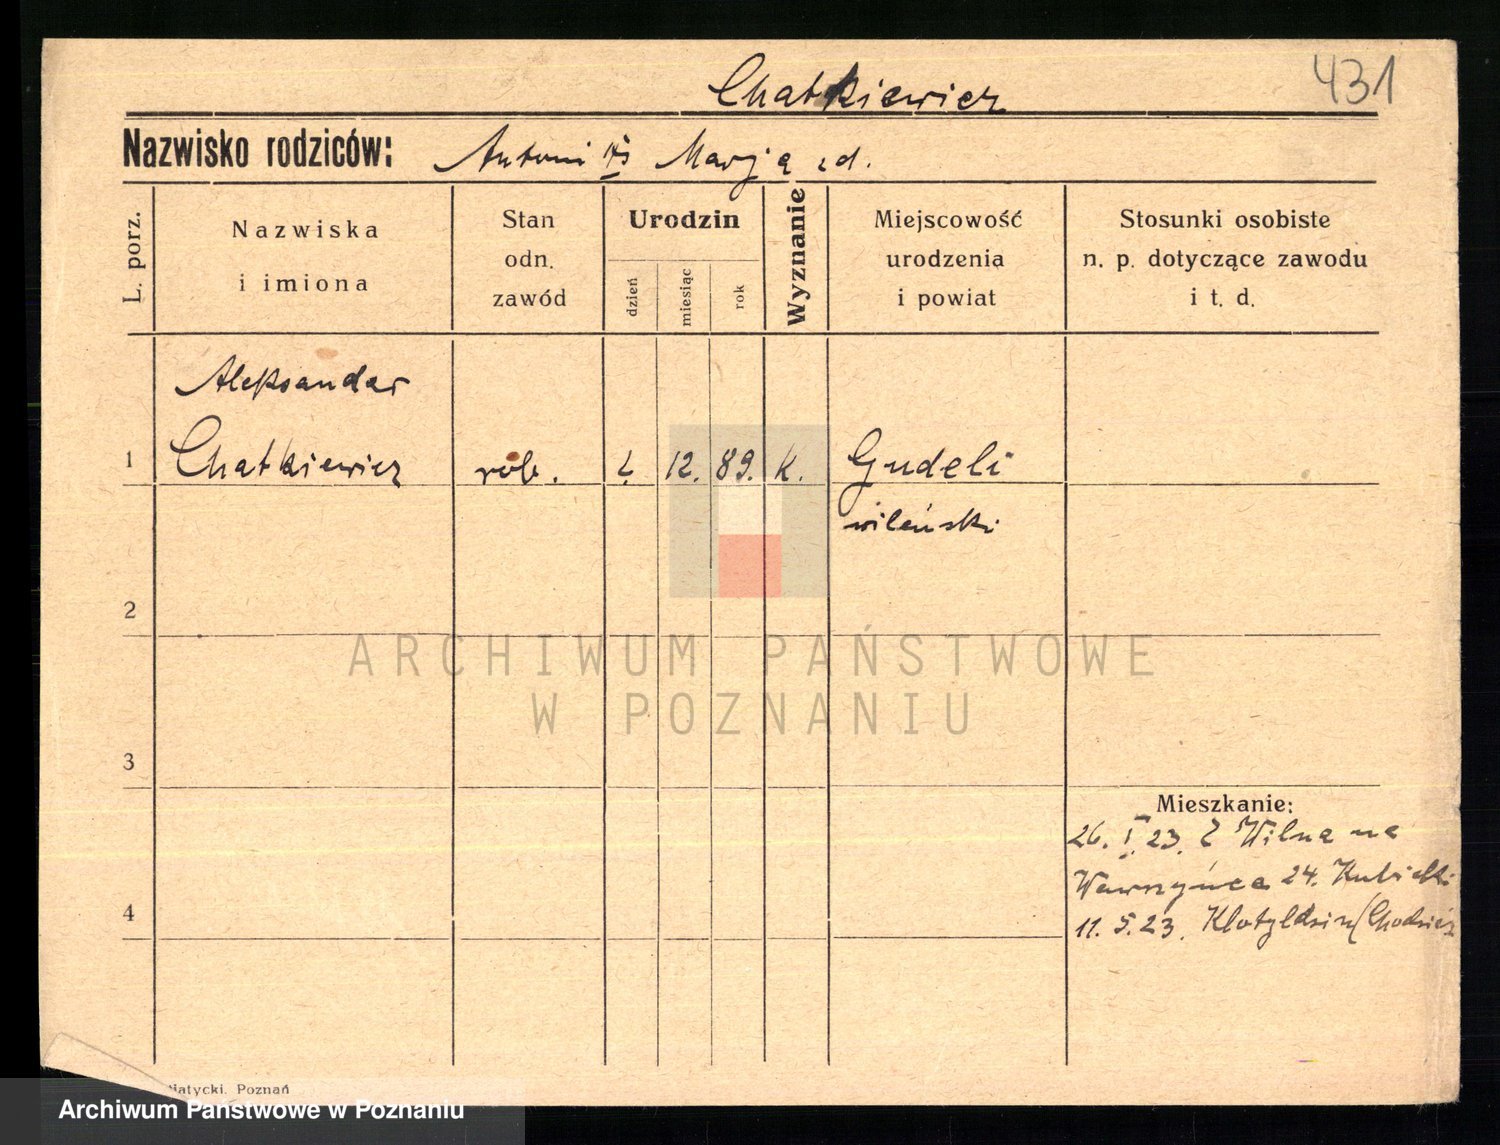 Chatkiewicz 431
Nazwisko rodziców: Antoni i Marja zd.
L. porz.
Nazwiska
i imiona
Stan
odn.
zawód
Urodzin
dzień
miesiąc
rok
Wyznanie
Miejscowość
urodzenia
i powiat
Stosunki osobiste
n. p. dotyczące zawodu
i t. d.
Aleksander
1 Chatkiewicz rob. 12. 89. K. Gudeli
wileński
2
ARCHIWUM PAŃSTWOWE
W POZNANIU
3
Mieszkanie:
26. I. 23. Z Wilna na
Wawrzyńca 24. Kubicki
4
11. 5. 23. Klotyldzin (Chodzież
Piatycki, Poznań
Archiwum Państwowe w Poznaniu